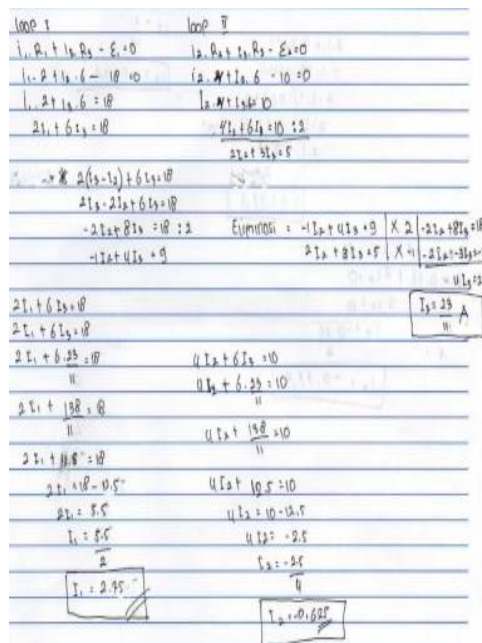 loop I
i₁.R₁ + I₃.R₃ - ε₁=0
i₁.2 + I₃.6 - 18 =0
I₁.2 + I₃.6 = 18
2I₁ + 6I₃ = 18
loop II
i₂.R₂ + I₃.R₃ - ε₂=0
i₂.4 + I₃.6 - 10 =0
I₂.4 + I₃.6 = 10
4I₂ + 6I₃ = 10 : 2
2I₂ + 3I₃ = 5
2(I₃-I₂) + 6I₃ = 18
2I₃ - 2I₂ + 6I₃ = 18
-2I₂ + 8I₃ = 18 : 2
-1I₂ + 4I₃ = 9
Eliminasi = -1I₂ + 4I₃ = 9 | X 2 | -2I₂ + 8I₃ = 18
2I₂ + 3I₃ = 5 | X -1 | -2I₂ + -3I₃ =
I₃ = 23/11 A
2I₁ + 6I₃ = 18
2I₁ + 6I₃ = 18
2I₁ + 6.23/11 = 18
2I₁ + 138/11 = 18
2I₁ + 12.5 = 18
2I₁ = 18 - 12.5
2I₁ = 5.5
I₁ = 5.5/2
I₁ = 2.75
4I₂ + 6I₃ = 10
4I₂ + 6.23/11 = 10
4I₂ + 138/11 = 10
4I₂ + 12.5 = 10
4I₂ = 10 - 12.5
4I₂ = -2.5
I₂ = -2.5/4
I₂ = -0.625